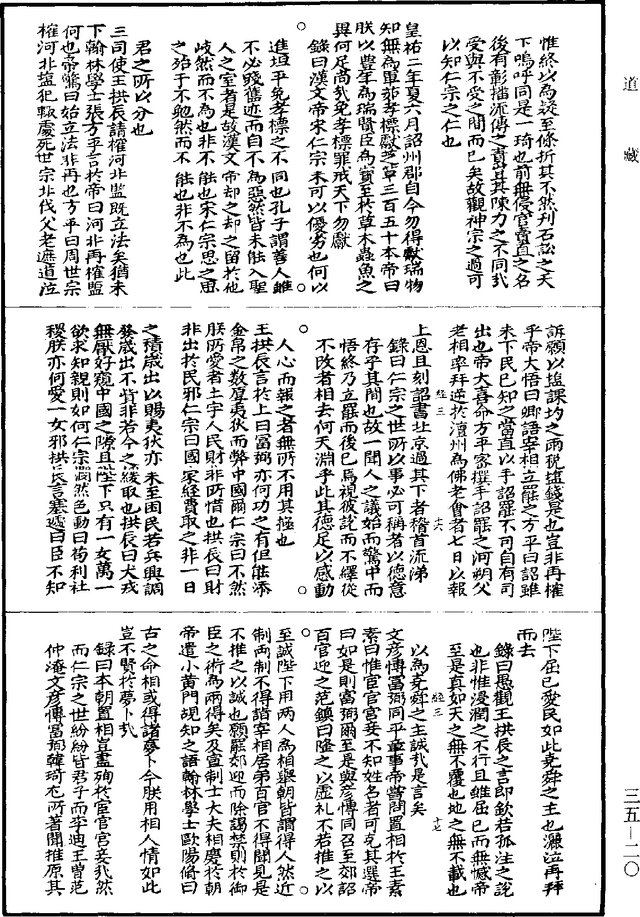 道藏
惟終以為疑至條折其不然刋石訟之天
下嗚呼同是一琦也前無侵官賣直之名
後有彰播流傳之責豈其陳力之不同哉
受與不受之間而已矣故觀神宗之過可
以知仁宗之仁也
皇祐二年夏六月詔州郡自今勿得獻瑞物
知無為軍茹孝標獻芝草三百五十本帝曰
朕以豐年為瑞賢臣為寳至於草木蟲魚之
異何足尚哉免孝標罪戒天下勿獻
錄曰漢文帝宋仁宗未可以優劣也何以
進垣平免孝標之不同也孔子謂善人雖
不必踐舊迹而自不為惡然皆未能入聖
人之室者是故漢文帝却之却之留於他
岐然而不為也非不能也宋仁宗思之思
之殆于不勉然而不能也非不為也此
君之所以分也
三司使王拱辰請榷河北監既立法矣猶未
下翰林學士張方平言於帝曰河非再榷盬
何也帝驚曰始立法非再也方平曰周世宗
榷河北塩犯輙處死世宗北伐父老遮道泣
訴願以塩課均之兩稅塩錢是也豈非再榷
乎帝大悟曰卿語宰相立罷之方平曰詔雖
未下民已知之當直以手詔罷不可自有司
出也帝大喜命方平宻撰手詔罷之河朔父
老相率拜迎於澶州為佛老會者七日以報
上恩且刻詔書北京過其下者稽首流涕
經三
十六
錄曰仁宗之世所以事必可稱者以德意
存乎其間也故一聞人之議始而驚中而
悟終乃立罷而後已焉視彼說而不繹從
不改者相去何天淵乎此其德足以感動
人心而報之者無所不用其極也
王拱辰言於上曰富弼亦何功之有但能添
金帛之數厚夷狄而弊中國爾仁宗曰不然
朕所愛者土宇人民財非所惜也拱辰曰財
非出於民邪仁宗曰國家經費取之非一日
之積歲出以賜夷狄亦未至困民若兵興調
發歲出不貲非若今之緩取也拱辰曰犬戎
無厭好窺中國之隙且陛下只有一女萬一
欲求和親則如何仁宗憫然色動曰苟利社
稷朕亦何愛一女邪拱辰言塞遽曰臣不知
陛下屈已愛民如此堯舜之主也灑泣再拜
而去
錄曰愚觀王拱辰之言即欽若孤注之說
也非惟浸潤之不行且雖屈已而無憾帝
至是真如天之無不覆也地之無不載也
經三
十七
以為堯舜之主誠哉是言矣
文彦博富弼同平章事帝嘗問置相於王素
素曰惟宦官宮妾不知姓名者可充其選帝
曰如是則富弼爾至是與彦博同召至郊詔
百官迎之范鎮曰隆之以虛礼不若推之以
至誠陛下用两人為相舉朝皆謂得人然近
制两制不得詣宰相居第百官不得間見是
不推之以誠也願罷郊迎而除謁禁則於御
臣之術為兩得矣及宣制士大夫相慶於朝
帝遣小黄門覘知之語翰林學士歐陽脩曰
古之命相或得諸夢卜今朕用相人情如此
豈不賢於夢卜哉
錄曰本朝置相豈盡殉於宦官宮妾哉然
而仁宗之世紛紛皆君子而李迪王曽范
仲淹文彦博富弼韓琦尤所著聞推原其
三五—二〇